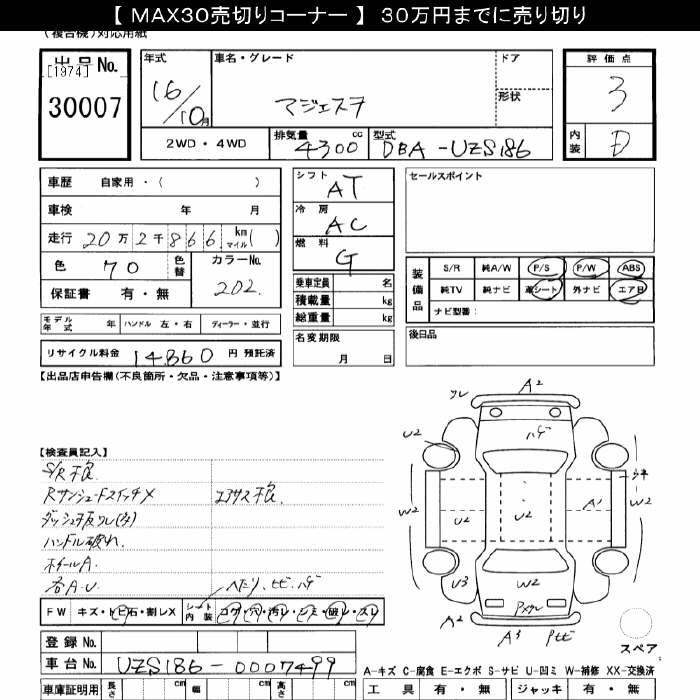 【 MAX30売切りコーナー 】 30万円までに売り切り
(複合機)対応用紙
出品 No.
[1974]
30007
年式
16/10月
車名・グレード
マジェスタ
ドア
形状
評価点
3
内装
D
2WD・4WD
排気量
4300 cc
型式
DBA-UZS186
車歴 自家用・( )
車検 年 月
走行 20万2千866 km マイル( )
色 70 色替 カラーNo. 202
保証書 有・無
モデル年式 年 ハンドル 左・右 ディーラー・並行
リサイクル料金 14860 円 預託済
シフト AT
冷房 AC
燃料 G
乗車定員 名
積載量 kg
総重量 kg
名変期限
月 日
セールスポイント
装備品
S/R 純A/W P/S P/W ABS
純TV 純ナビ 革シート 外ナビ エアB
ナビ型番:
後日品
【出品店申告欄(不良箇所・欠品・注意事項等)】
【検査員記入】
S/R不良
RサンシェードスイッチX
エアサス不良.
ハンドル破れ.
ホイールA.
各A.U.
ヘタリ、ヒビ、ハゲ
FW キズ・トビ石・割レX シート内装 コゲ・穴・汚レ・シミ・破レ・スレ
登録 No.
車台 No. UZS186-0007499
車庫証明用 長さ cm 幅 cm 高さ cm
A2
ハゲ
U2
W2
U2
U2
A1
W2
U3
W2
A2
A3
スペア
A-キズ C-腐食 E-エクボ S-サビ U-凹ミ W-補修 XX-交換済
工具 有・無 ジャッキ 有・無